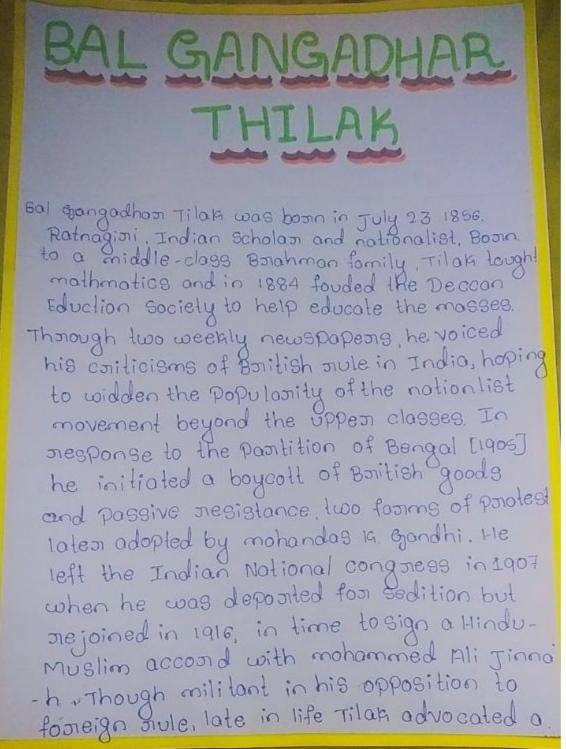 BAL GANGADHAR
THILAK
Bal Gangadhar Tilak was born in July 23 1856.
Ratnagiri, Indian Scholar and nationalist, Born
to a middle-class Brahman family, Tilak tought
mathmatics and in 1884 fouded the Deccan
Eduction Society to help educate the masses.
Through two weekly newspapers, he voiced
his criticisms of British rule in India, hoping
to widden the popularity of the nationlist
movement beyond the upper classes. In
response to the Partition of Bengal [1905]
he initiated a boycott of British goods
and passive resistance, two forms of protest
later adopted by mohandas K. Gandhi. He
left the Indian National congress in 1907
when he was deported for Sedition but
rejoined in 1916, in time to sign a Hindu-
Muslim accord with mohammed Ali Jinna
-h. Though militant in his opposition to
foreign rule, late in life Tilak advocated a